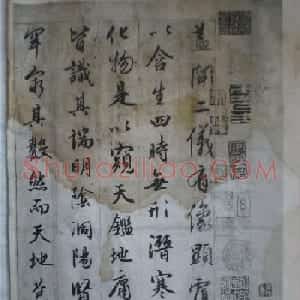 盖闻二儀有像顯覆
以含生四時無形潛寒
化物是以窺天鑑地庸
皆識其端明陰洞陽賢
窮其數然而天地苞
Shufaziliao.com